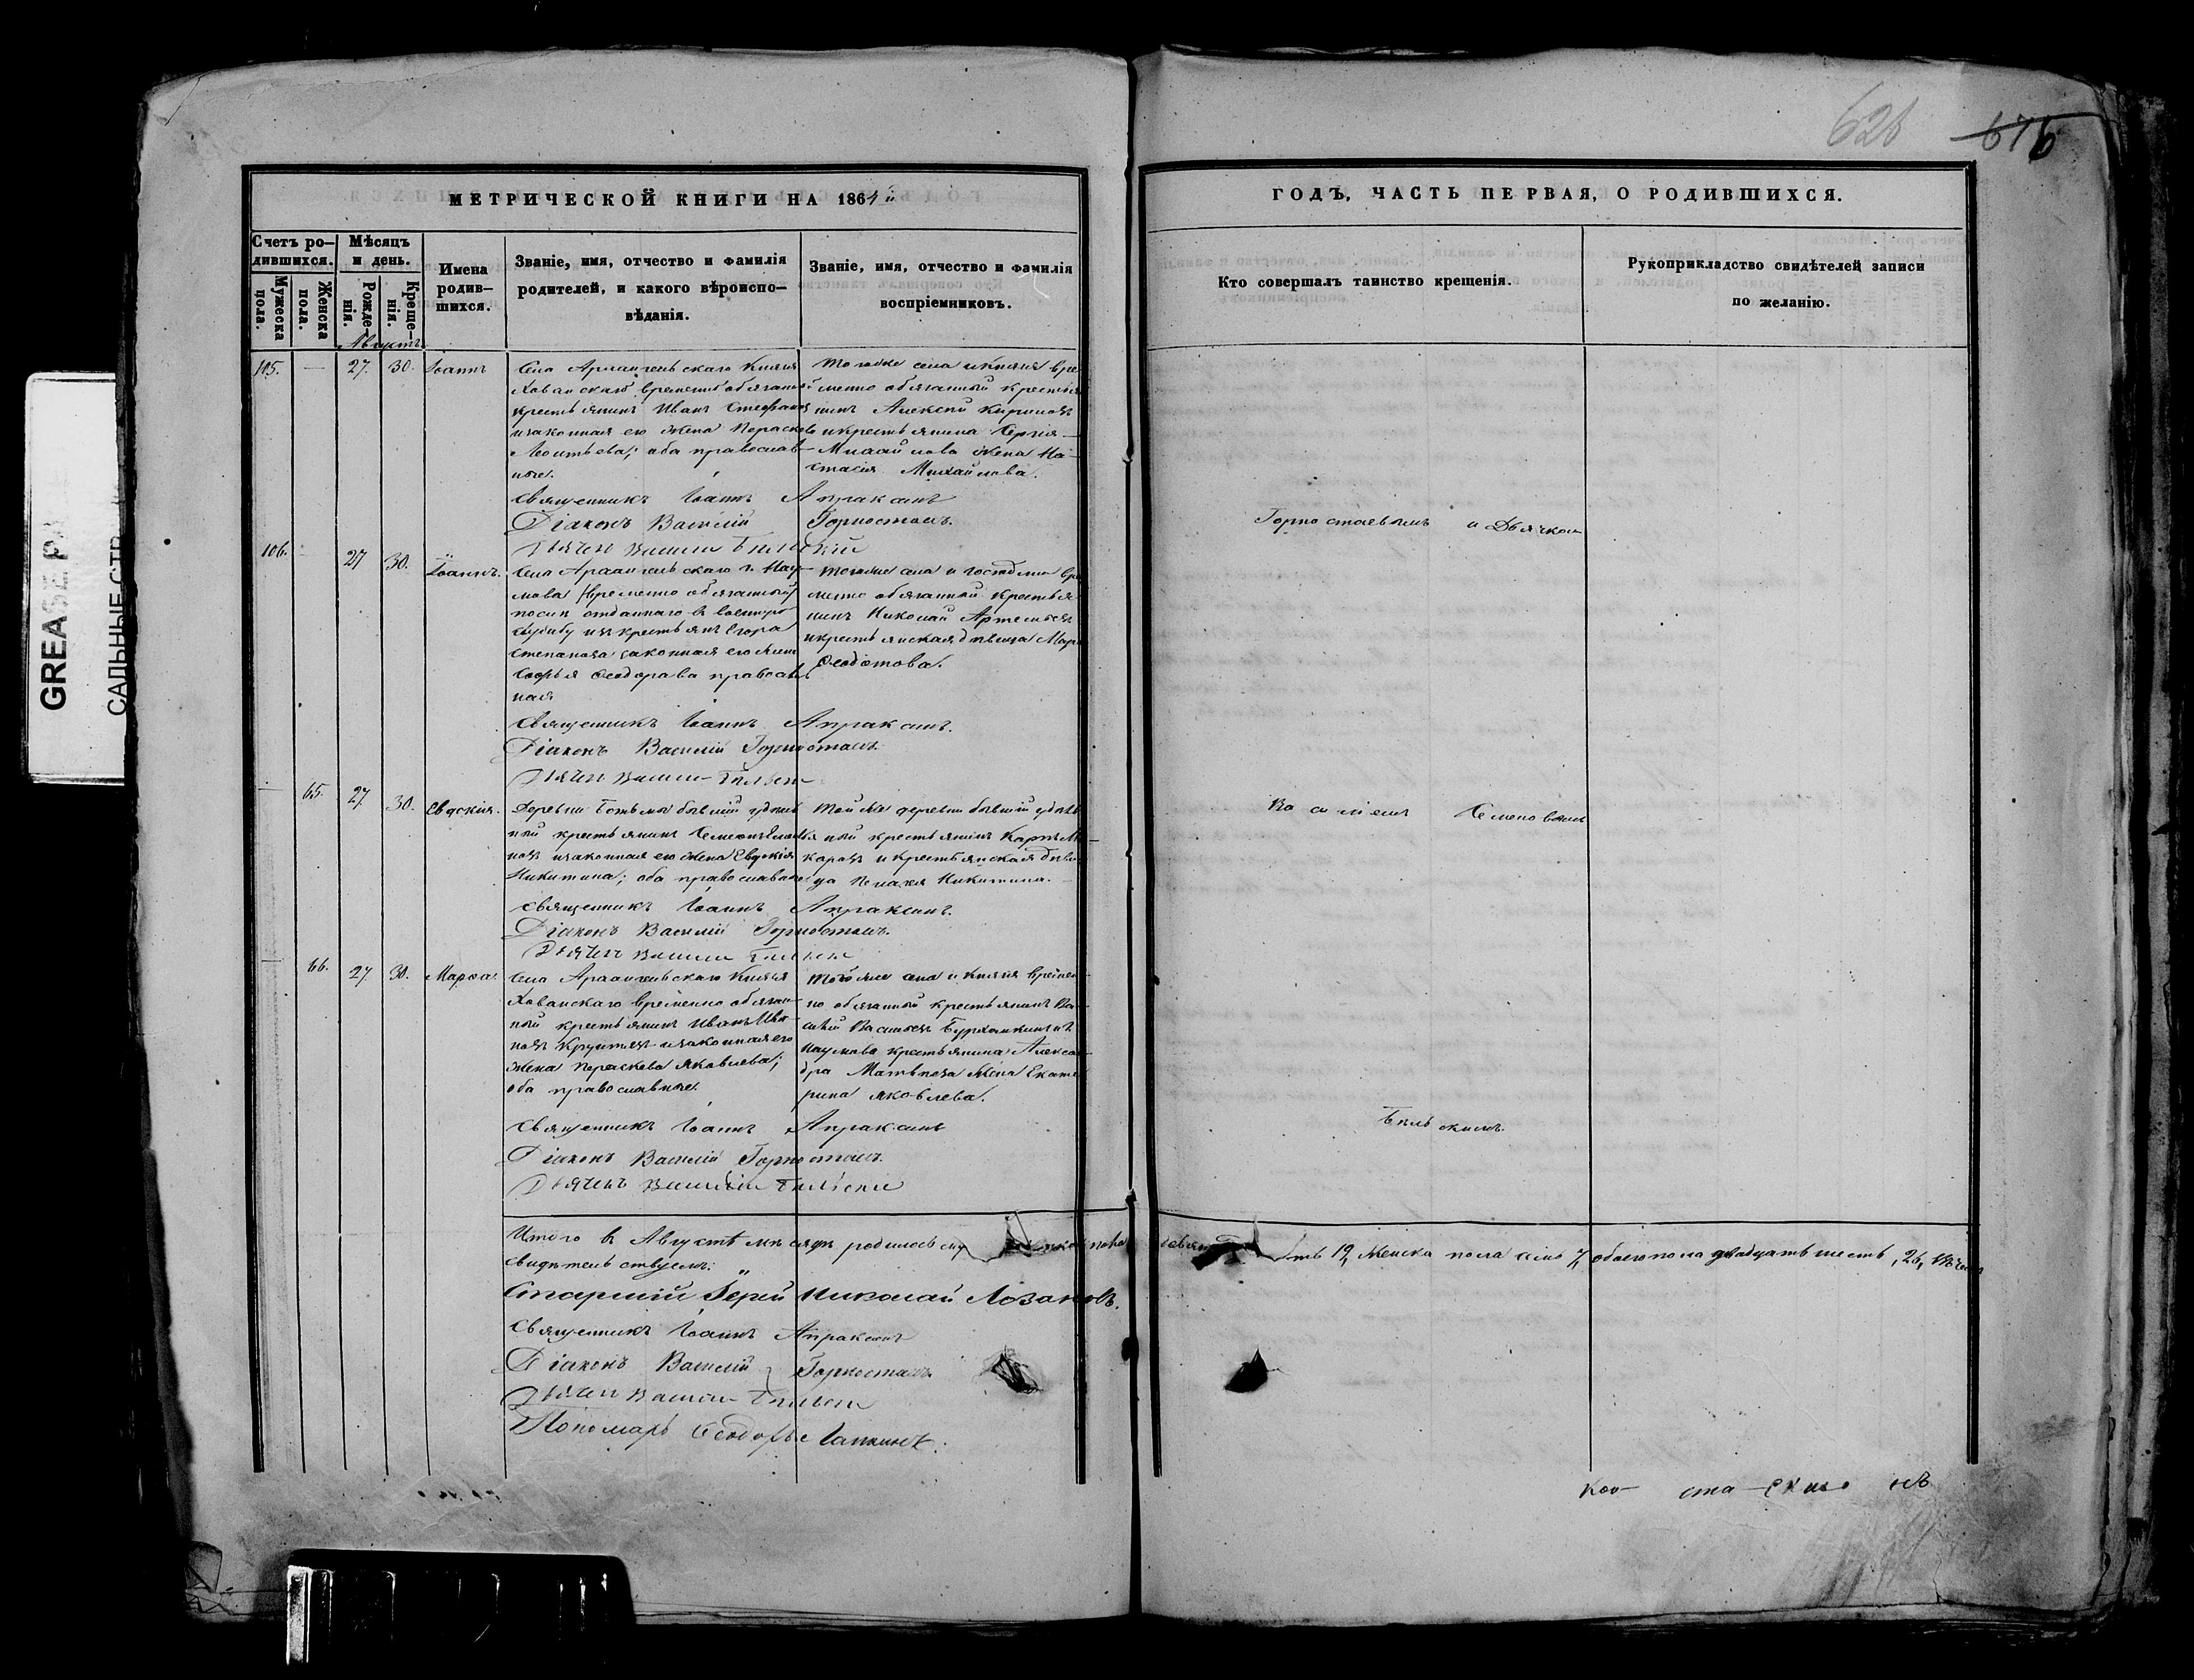 628 676
МЕТРИЧЕСКОЙ КНИГИ НА 1864й
ГОДЪ, ЧАСТЬ ПЕРВАЯ, О РОДИВШИХСЯ.
Счетъ ро-
дившихся.
Мужеска
пола.
Женска
пола.
Мѣсяцъ
и день.
Рожде-
нія.
Креще-
нія.
Имена
родив-
шихся.
Званіе, имя, отчество и фамилія
родителей, и какого вѣроиспо-
вѣданія.
Званіе, имя, отчество и фамилія
воспріемниковъ.
Кто совершалъ таинство крещенія.
Рукоприкладство свидѣтелей записи
по желанію.
Августъ
105. — 27. 30. Іоаннъ
Села Архангельскаго Князя
Хованскаго временно обязанный
крестьянинъ Иванъ Стефановъ
и законная его жена Параскева
Леонтьева; оба православ-
ные.
Тогоже села и Князя вре
менно обязанный крестья
нинъ Алексей Кириловъ
и крестьянина Сергія
Михайлова жена На-
стасія Михайлова.
Священникъ Іоаннъ Апраксинъ
Діаконъ Василій Горностаевъ.
Дьячекъ Василій Бѣльскій
Горностаевымъ и Дьячкомъ
106. — 27 30. Іоаннъ.
Села Архангельскаго г. Нау-
мова временно обязанный
послѣ отданнаго въ военную
службу изъ крестьянъ Егора
Степанова законная его жена
Софья Феодорова православ
ная
Тогоже села и господина вре
менно обязанный крестья
нинъ Николай Артемьевъ
и крестьянская дѣвица Марѳа
Федотова.
Священникъ Іоаннъ Апраксинъ.
Діаконъ Василій Горностаевъ.
Дьячекъ Василій Бѣльскій
— 65. 27 30. Евдокія.
Деревни Ботьмы бывшій удѣль
ный крестьянинъ Семенъ Емелья
новъ и законная его жена Евдокія
Никитина; оба православные
Той же деревни бывшій удѣль
ный крестьянинъ Карпъ Ма-
каровъ и крестьянская дѣви-
ца Пелагея Никитина.
Священникъ Іоаннъ Апраксинъ.
Діаконъ Василій Горностаевъ.
Дьячекъ Василій Бѣльскій
Василіемъ Семеновымъ
— 66. 27. 30. Марѳа.
Села Архангельскаго Князя
Хованскаго временно обязан-
ный крестьянинъ Иванъ Ива-
новъ и законная его
жена Параскева Яковлева;
оба православные.
Тогоже села и Князя времен-
но обязанный крестьянинъ Ва-
силій Васильевъ
Наумова крестьянина Алексан-
дра Матвѣева жена Екате
рина Яковлева.
Священникъ Іоаннъ Апраксинъ
Діаконъ Василій Горностаевъ.
Дьячекъ Василій Бѣльскій
Бѣльскимъ.
Итого въ Августѣ мѣсяцѣ родилось пола 19, женска пола семь 7, обоего пола двадцать шесть, 26,
свидѣтельствуемъ:
Старшій Іерей Николай Лозановъ.
Священникъ Іоаннъ Апраксинъ
Діаконъ Василій Горностаевъ
Дьячекъ Василій Бѣльскій
Пономарь Ѳеодоръ
GREASE P
САЛЬНЫЕ СТР